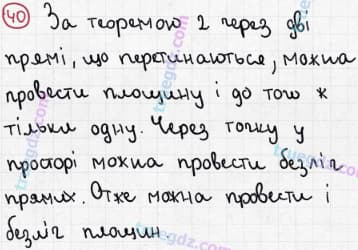 40 За теоремою 2 через дві
прямі, що перетинаються, можна
провести площину і до того ж
тільки одну. Через точку у
просторі можна провести безліч
прямих. Отже можна провести і
безліч площин.